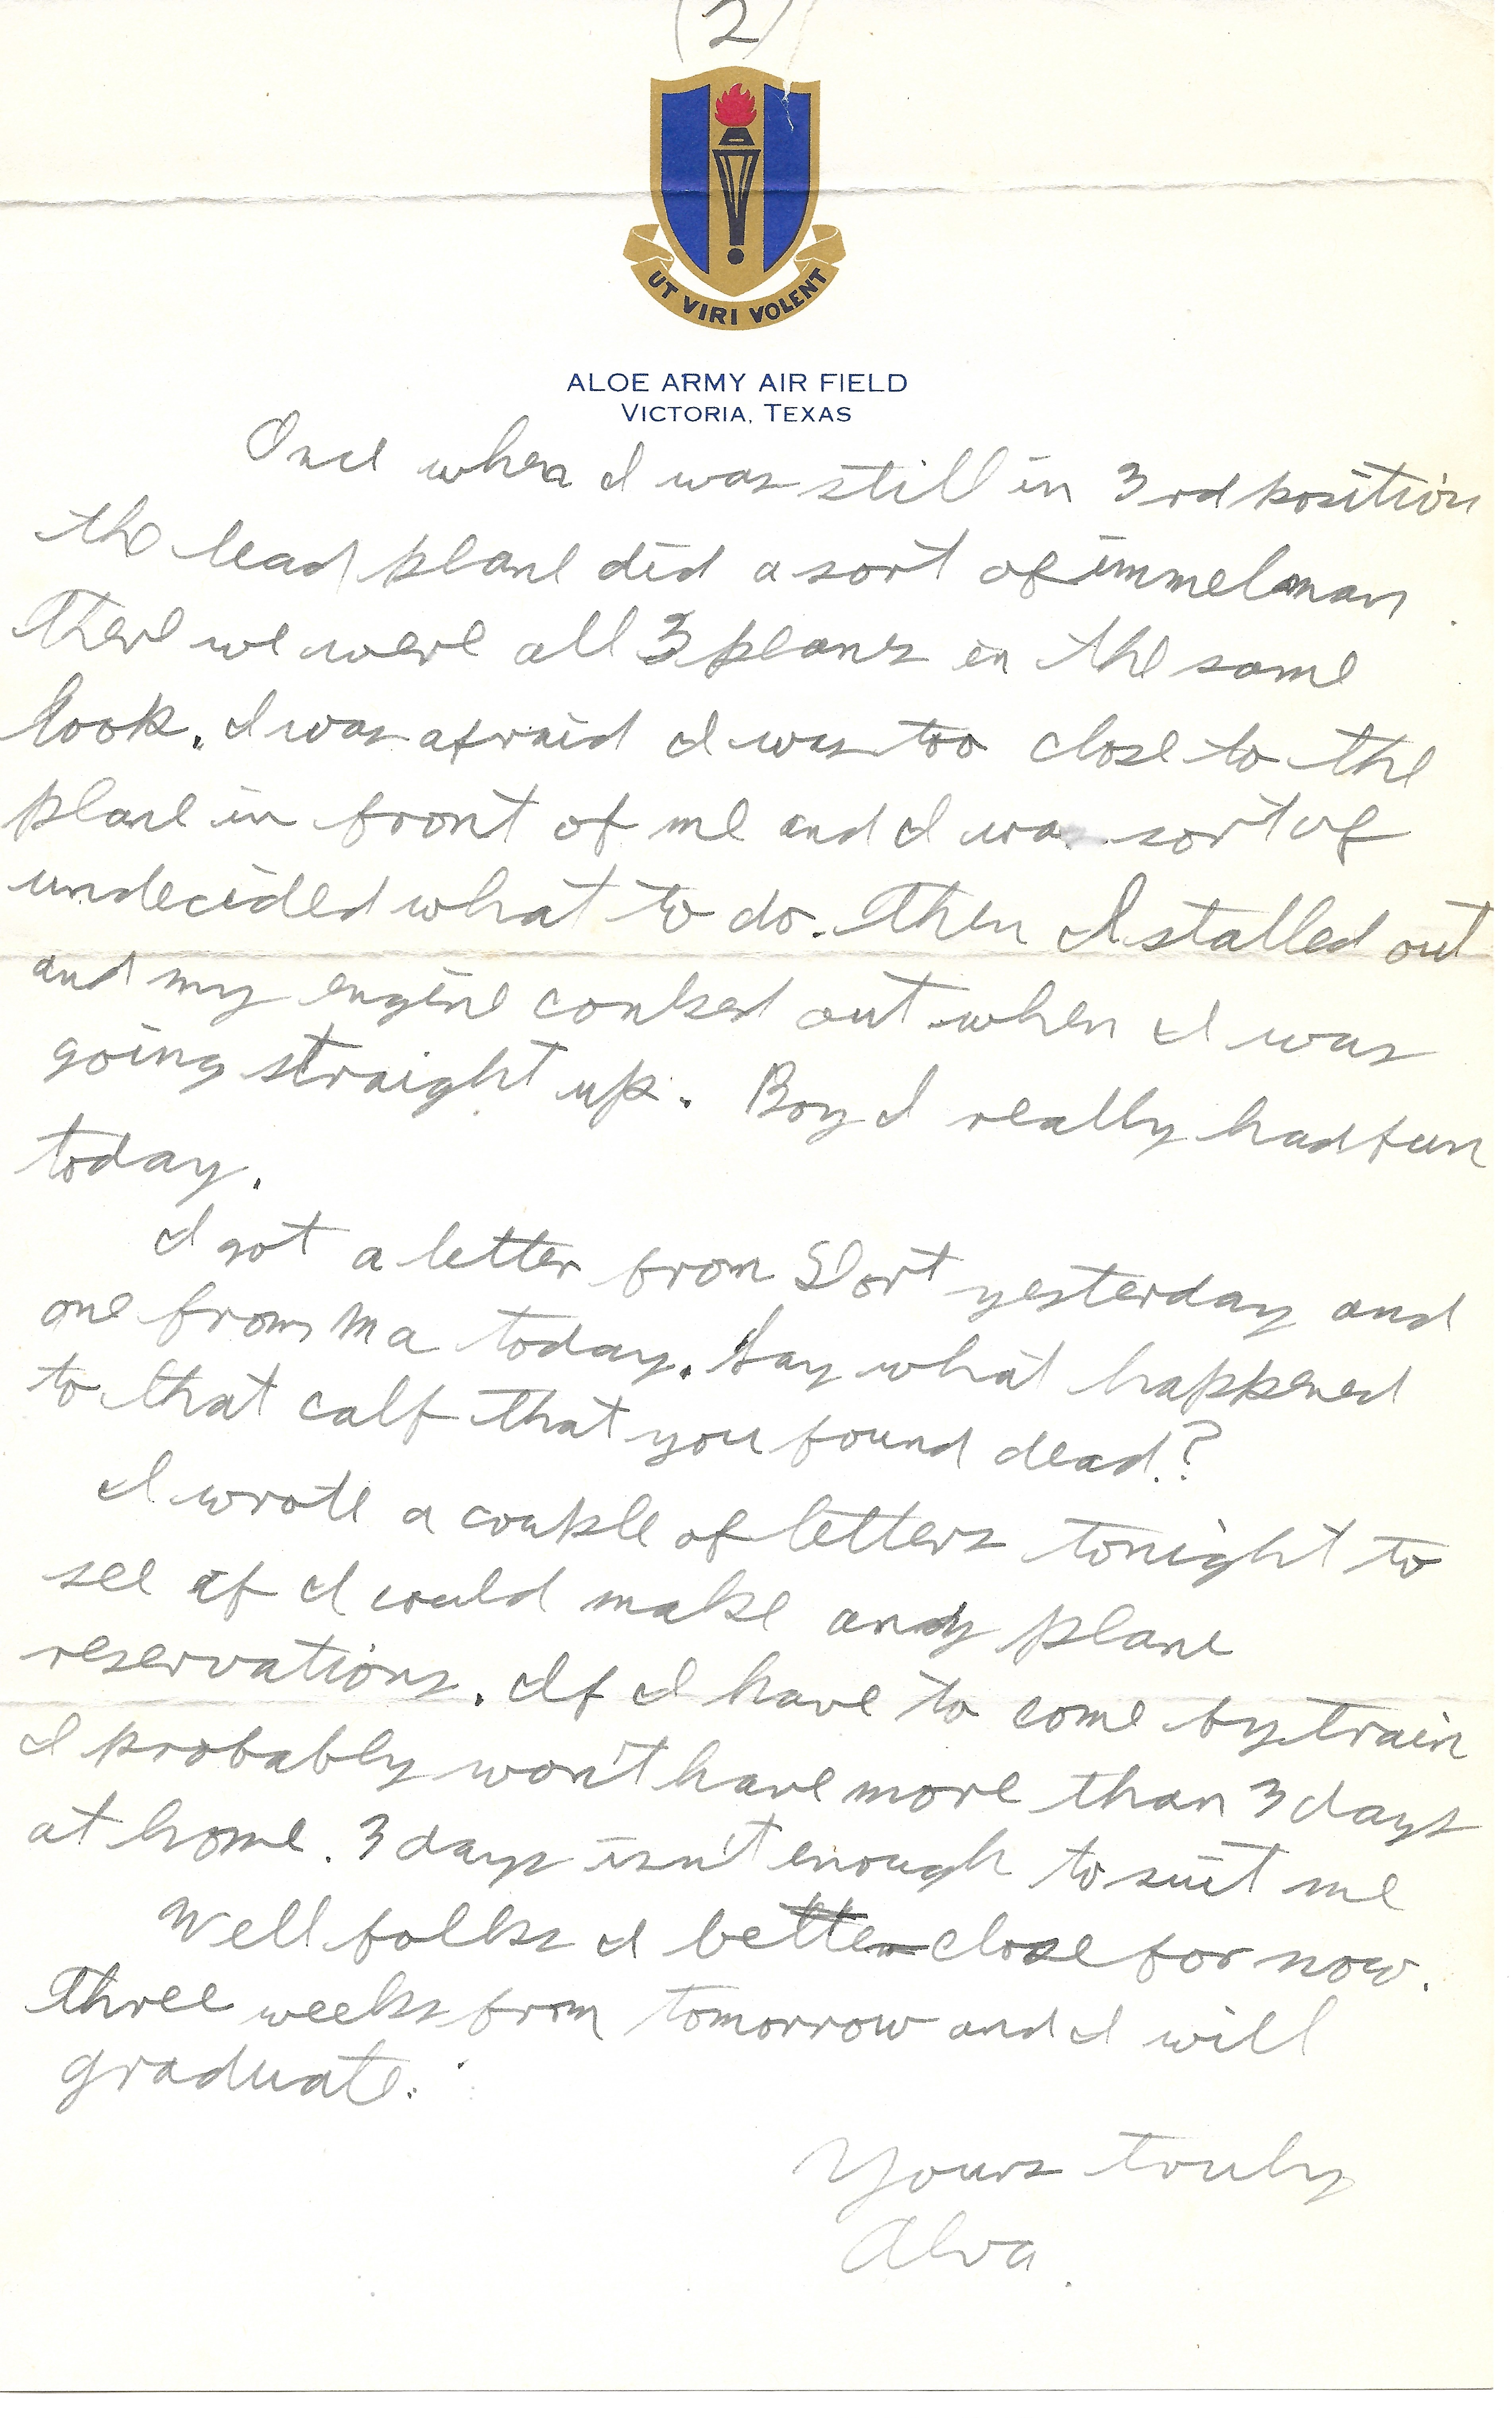 (2)
UT VIRI VOLENT
ALOE ARMY AIR FIELD
VICTORIA, TEXAS
Once when I was still in 3rd position
the lead plane did a sort of immelman.
There we were all 3 planes in the same
loop. I was afraid I was too close to the
plane in front of me and I was sort of
undecided what to do. Then I stalled out
and my engine conked out when I was
going straight up. Boy I really had fun
today.
I got a letter from Dort yesterday and
one from Ma today. Say what happened
to that calf that you found dead?
I wrote a couple of letters tonight to
see if I could make any plane
reservations. If I have to come by train
I probably won't have more than 3 days
at home. 3 days isn't enough to suit me
Well folks I better close for now.
Three weeks from tomorrow and I will
graduate.
Yours truly
Alva.